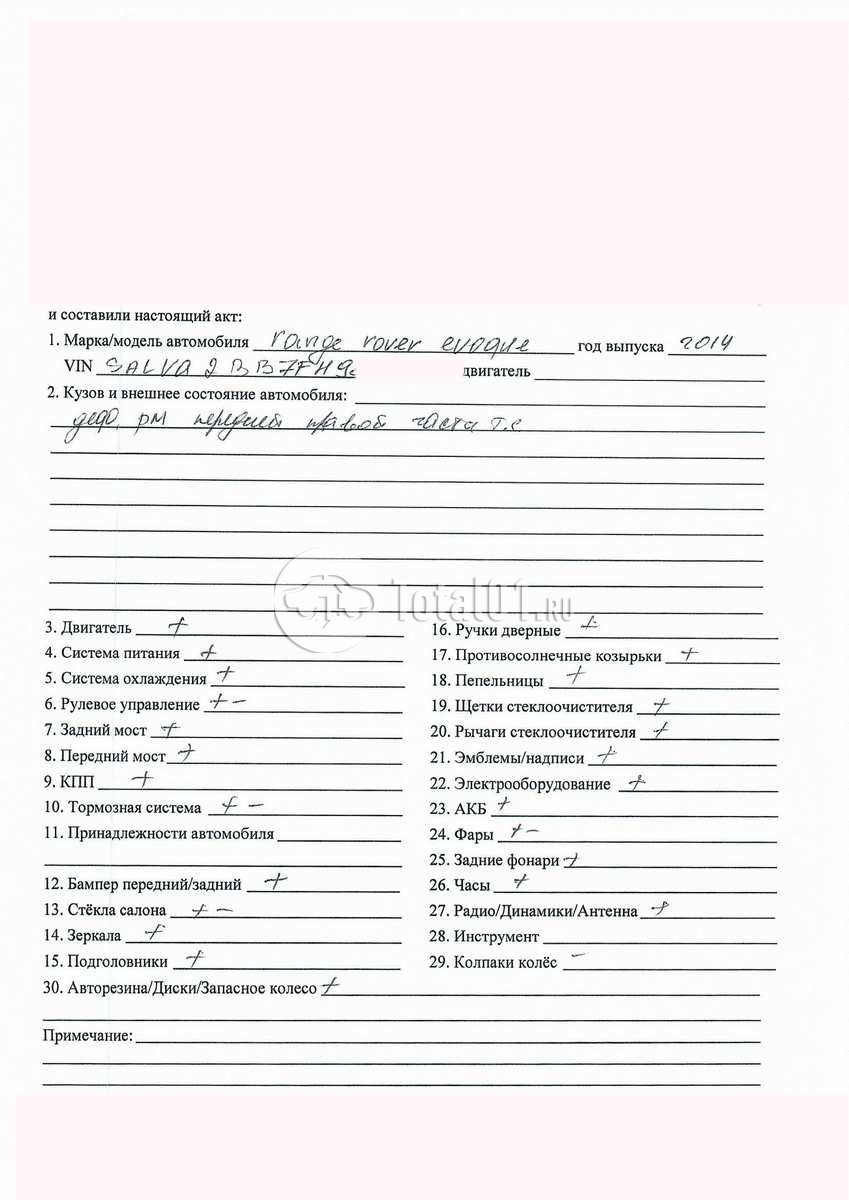 и составили настоящий акт:
1. Марка/модель автомобиля range rover evoque год выпуска 2014
VIN SALVA 2 BB7FH9 двигатель
2. Кузов и внешнее состояние автомобиля:
дефо рм передней правой части т.с
Total01.RU
3. Двигатель + 16. Ручки дверные +
4. Система питания + 17. Противосолнечные козырьки +
5. Система охлаждения + 18. Пепельницы +
6. Рулевое управление + - 19. Щетки стеклоочистителя +
7. Задний мост + 20. Рычаги стеклоочистителя +
8. Передний мост + 21. Эмблемы/надписи +
9. КПП + 22. Электрооборудование +
10. Тормозная система + - 23. АКБ +
11. Принадлежности автомобиля 24. Фары + -
25. Задние фонари +
12. Бампер передний/задний + 26. Часы +
13. Стёкла салона + - 27. Радио/Динамики/Антенна +
14. Зеркала + 28. Инструмент
15. Подголовники + 29. Колпаки колёс -
30. Авторезина/Диски/Запасное колесо +
Примечание: